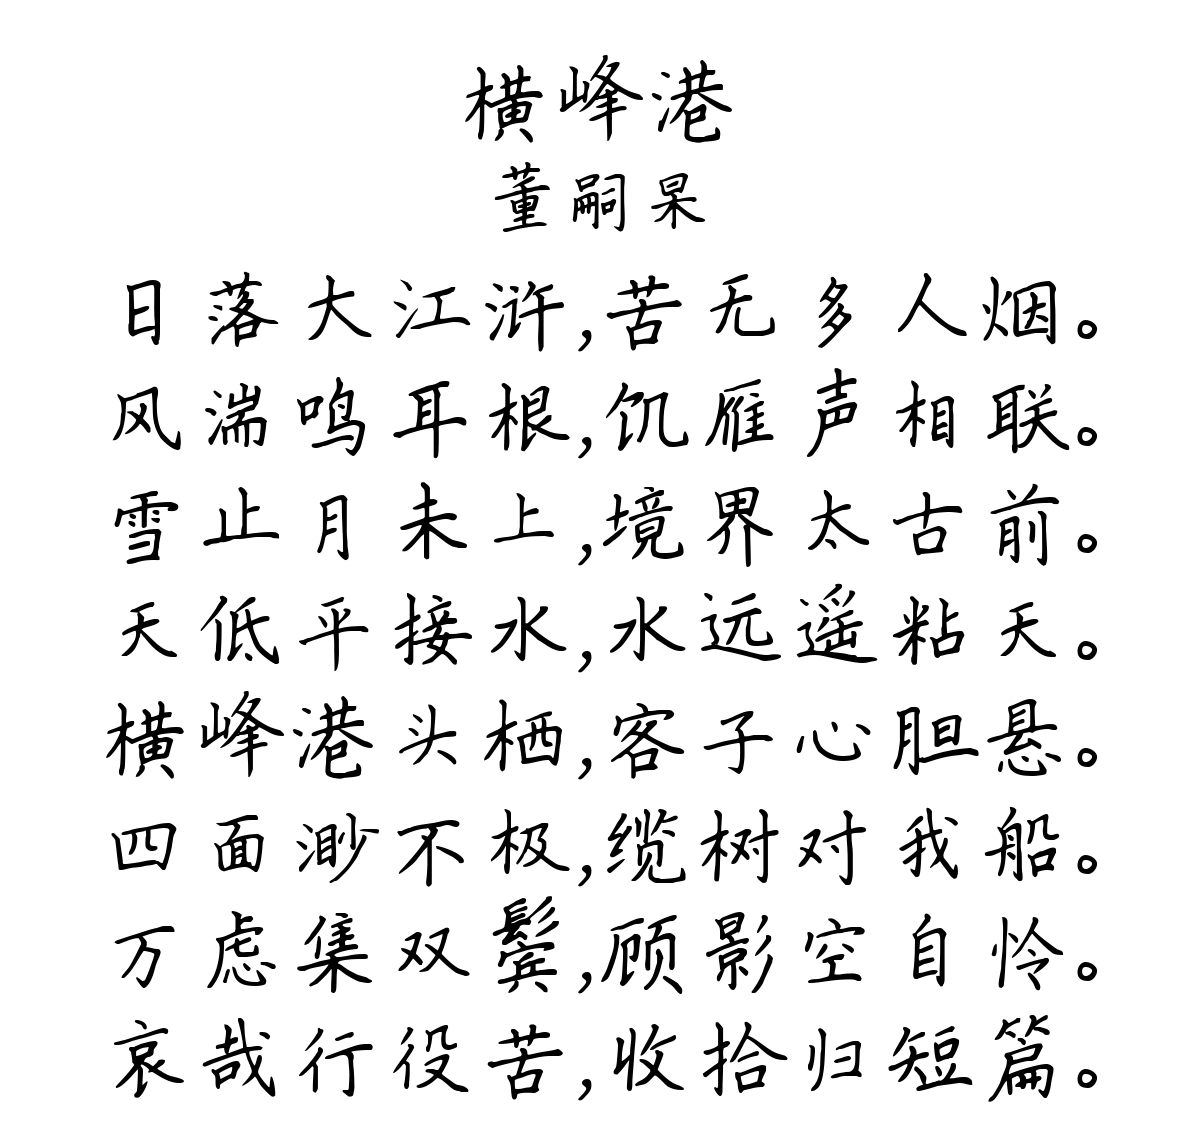 横峰港
董嗣杲
日落大江浒,苦无多人烟。
风湍鸣耳根,饥雁声相联。
雪止月未上,境界太古前。
天低平接水,水远遥粘天。
横峰港头栖,客子心胆悬。
四面渺不极,缆树对我船。
万虑集双鬓,顾影空自怜。
哀哉行役苦,收拾归短篇。